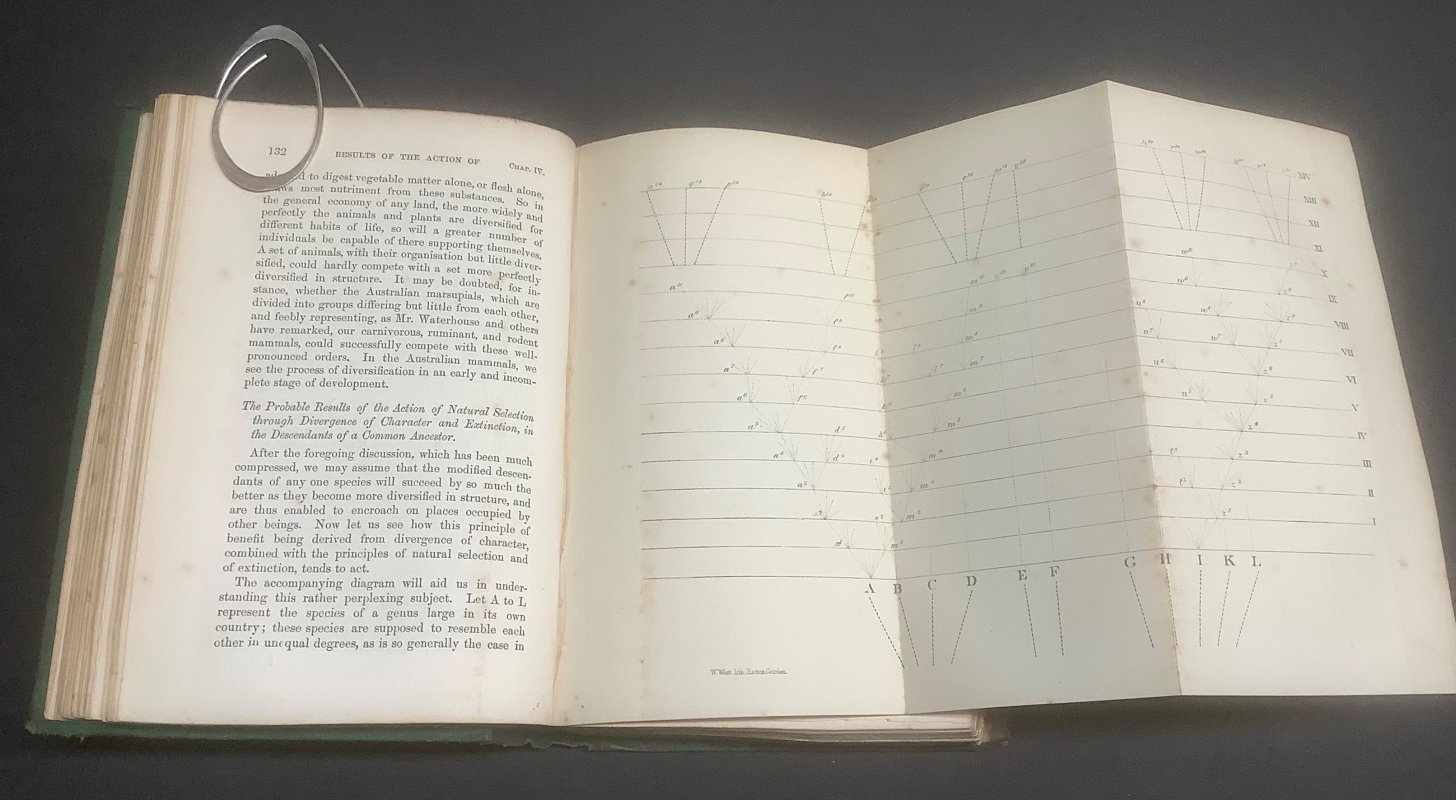 132 RESULTS OF THE ACTION OF CHAP. IV.
to digest vegetable matter alone, or flesh alone,
most nutriment from these substances. So in
the general economy of any land, the more widely and
perfectly the animals and plants are diversified for
different habits of life, so will a greater number of
individuals be capable of there supporting themselves.
A set of animals, with their organisation but little diver-
sified, could hardly compete with a set more perfectly
diversified in structure. It may be doubted, for in-
stance, whether the Australian marsupials, which are
divided into groups differing but little from each other,
and feebly representing, as Mr. Waterhouse and others
have remarked, our carnivorous, ruminant, and rodent
mammals, could successfully compete with these well-
pronounced orders. In the Australian mammals, we
see the process of diversification in an early and incom-
plete stage of development.
The Probable Results of the Action of Natural Selection
through Divergence of Character and Extinction, in
the Descendants of a Common Ancestor.
After the foregoing discussion, which has been much
compressed, we may assume that the modified descen-
dants of any one species will succeed by so much the
better as they become more diversified in structure, and
are thus enabled to encroach on places occupied by
other beings. Now let us see how this principle of
benefit being derived from divergence of character,
combined with the principles of natural selection and
of extinction, tends to act.
The accompanying diagram will aid us in under-
standing this rather perplexing subject. Let A to L
represent the species of a genus large in its own
country; these species are supposed to resemble each
other in unequal degrees, as is so generally the case in
XIV
XIII
XII
XI
X
IX
VIII
VII
VI
V
IV
III
II
I
a¹⁰
f¹⁰
a⁷ f⁷
a⁵ d⁵
m²
A B C D E F G H I K L
W. West lith. Hatton Garden.